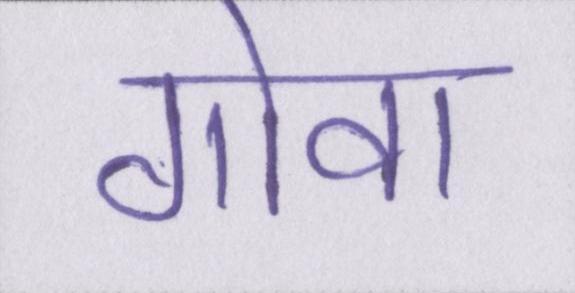 गोवा